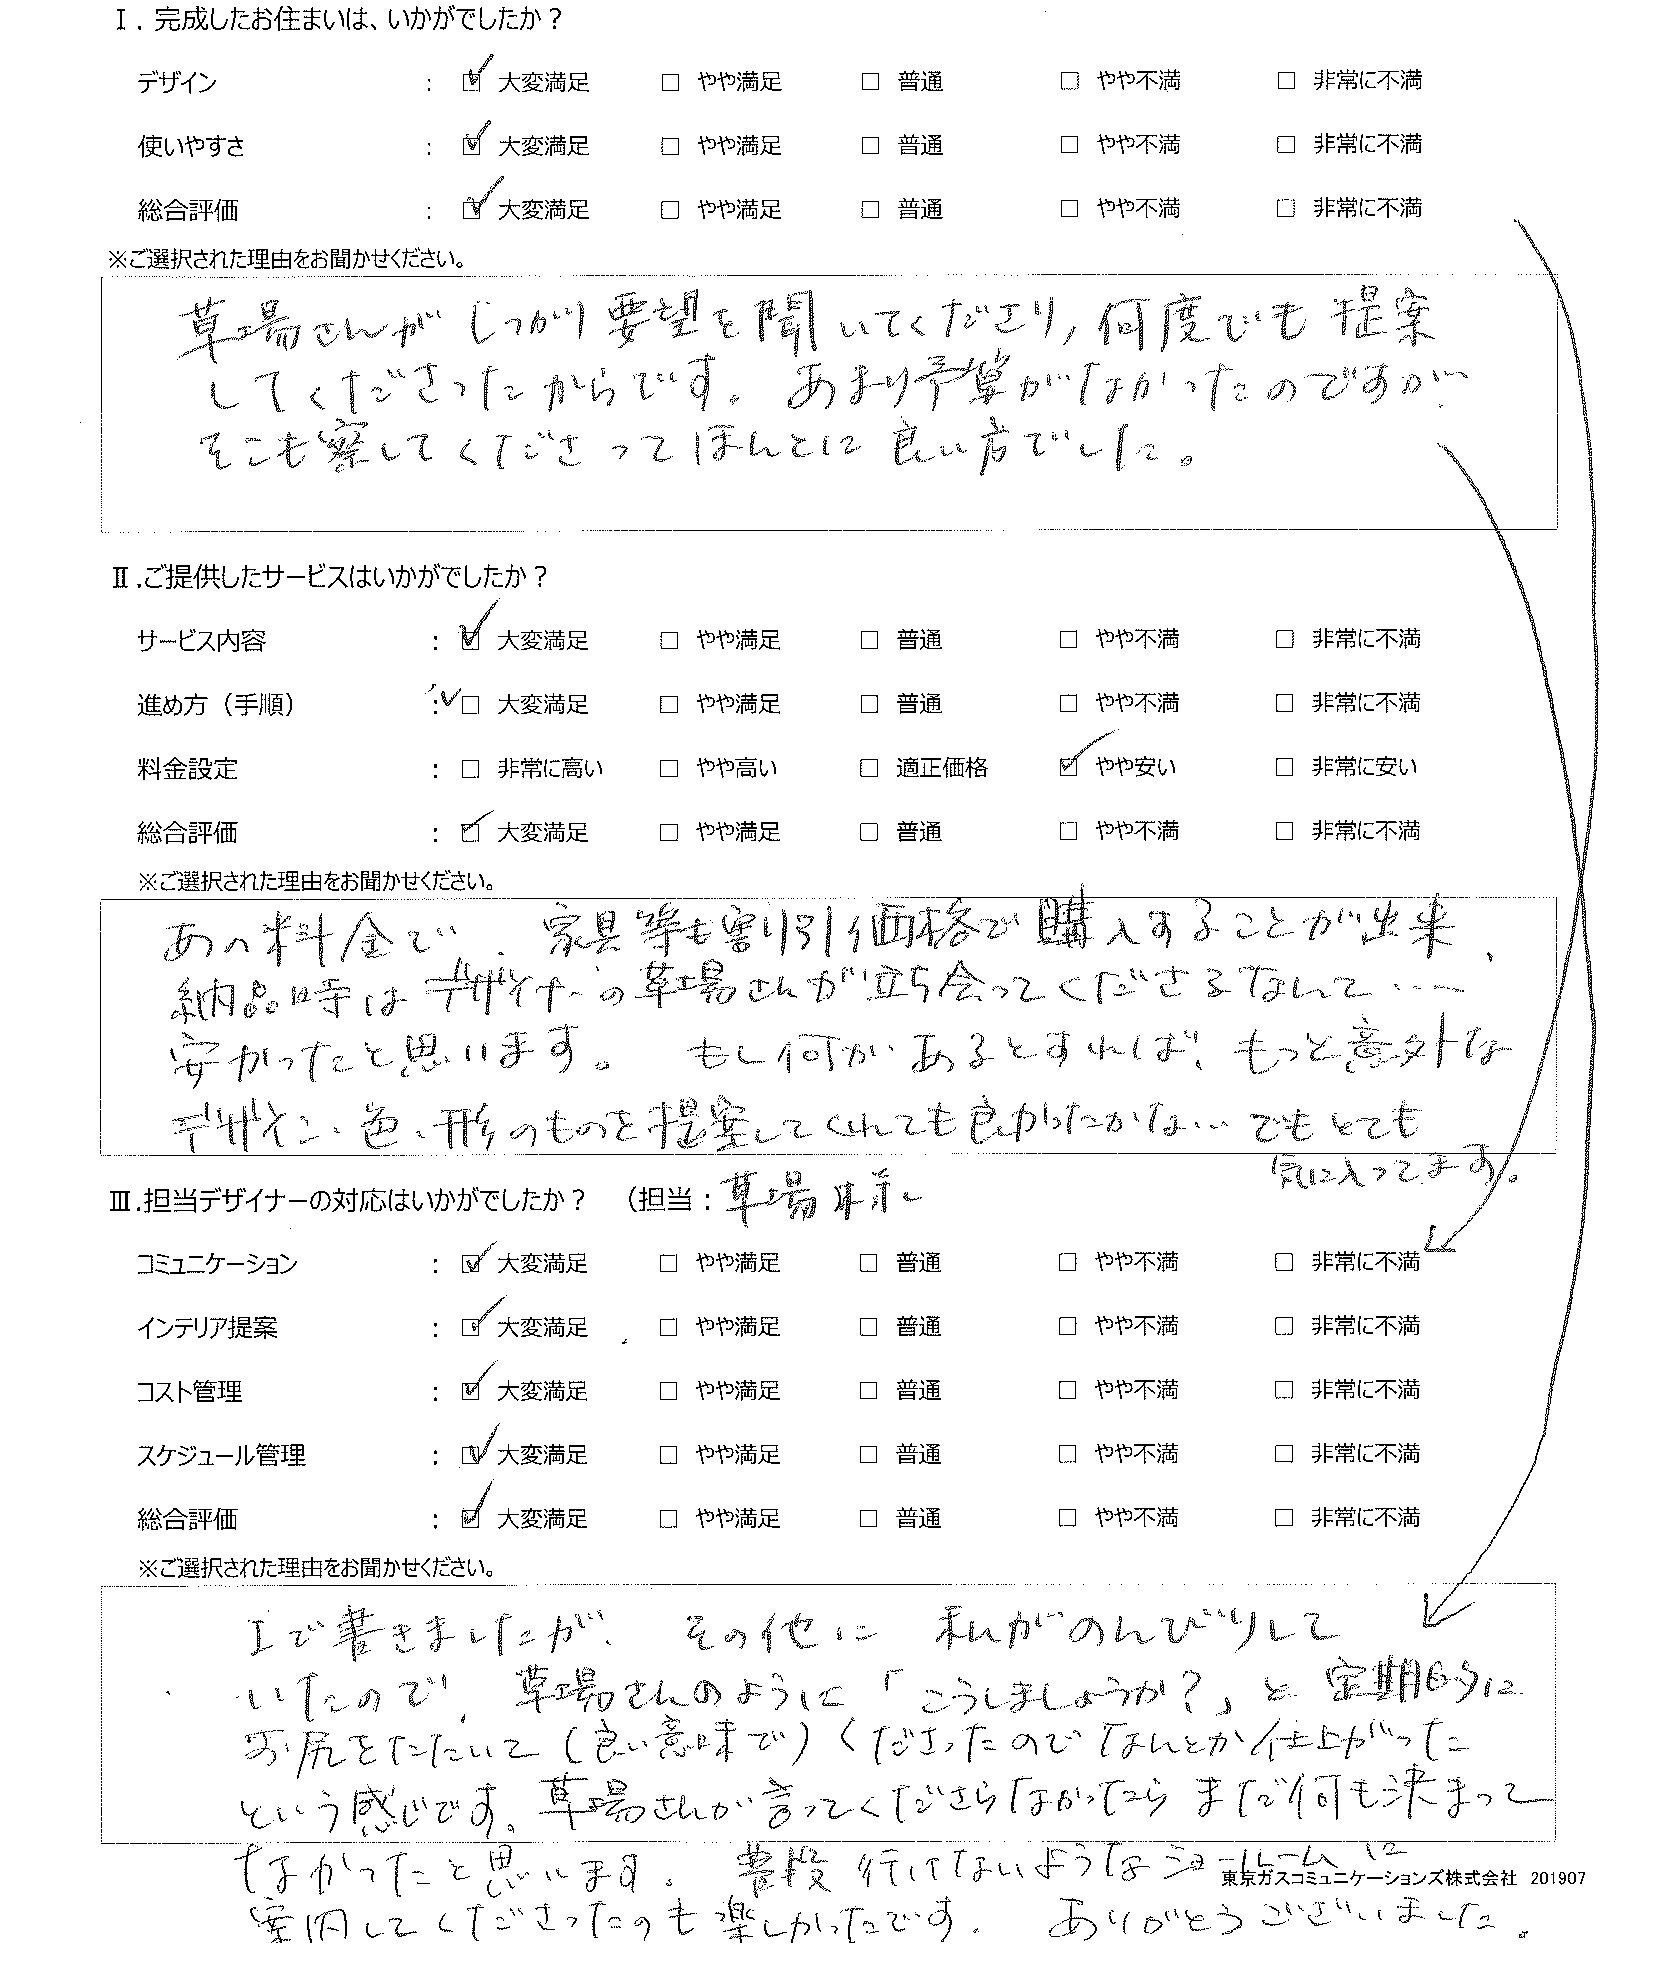 Ⅰ. 完成したお住まいは、いかがでしたか？
デザイン : ☑ 大変満足 □ やや満足 □ 普通 □ やや不満 □ 非常に不満
使いやすさ : ☑ 大変満足 □ やや満足 □ 普通 □ やや不満 □ 非常に不満
総合評価 : ☑ 大変満足 □ やや満足 □ 普通 □ やや不満 □ 非常に不満
※ご選択された理由をお聞かせください。
草場さんがしっかり要望を聞いてくださり, 何度でも提案
してくださったからです。あまり予算がなかったのですが、
そこも察してくださってほんとに良い方でした。
Ⅱ.ご提供したサービスはいかがでしたか？
サービス内容 : ☑ 大変満足 □ やや満足 □ 普通 □ やや不満 □ 非常に不満
進め方（手順） : ☑ 大変満足 □ やや満足 □ 普通 □ やや不満 □ 非常に不満
料金設定 : □ 非常に高い □ やや高い □ 適正価格 ☑ やや安い □ 非常に安い
総合評価 : ☑ 大変満足 □ やや満足 □ 普通 □ やや不満 □ 非常に不満
※ご選択された理由をお聞かせください。
あの料金で、家具等も割り引価格で購入することが出来、
納品時はデザイナーの草場さんが立ち会ってくださるなんて……
安かったと思います。もし何かあるとすれば、もっと意外な
デザイン、色、形のものを提案してくれても良かったかな… でもとても
気に入ってます。
Ⅲ.担当デザイナーの対応はいかがでしたか？ （担当：草場様）
コミュニケーション : ☑ 大変満足 □ やや満足 □ 普通 □ やや不満 □ 非常に不満
インテリア提案 : ☑ 大変満足 □ やや満足 □ 普通 □ やや不満 □ 非常に不満
コスト管理 : ☑ 大変満足 □ やや満足 □ 普通 □ やや不満 □ 非常に不満
スケジュール管理 : ☑ 大変満足 □ やや満足 □ 普通 □ やや不満 □ 非常に不満
総合評価 : ☑ 大変満足 □ やや満足 □ 普通 □ やや不満 □ 非常に不満
※ご選択された理由をお聞かせください。
Ⅰで書きましたが、その他に 私がのんびりして
いたので、草場さんのように「こうしましょうか？」と定期的に
お尻をたたいて（良い意味で）くださったのでなんとか仕上がった
という感じです。草場さんが言ってくださらなかったらまだ何も決まって
なかったと思います。普段行けないようなショールームに
東京ガスコミュニケーションズ株式会社 201907
案内してくださったのも楽しかったです。ありがとうございました。